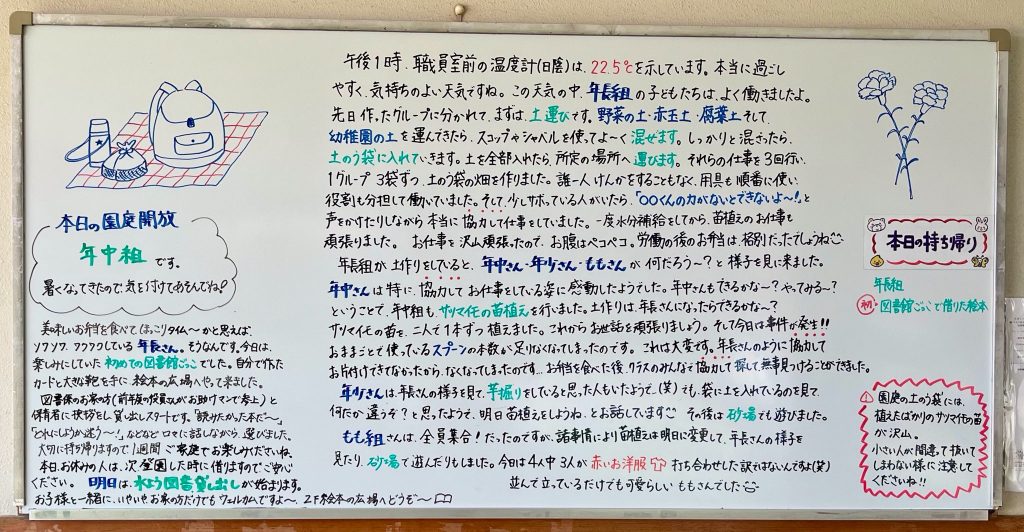 本日の園庭開放
年中組 です。
暑くなってきたので、気を付けてあそんでね!
美味しいお弁当を食べて、ほっこりタイム〜かと思えば、
ソワソワ、ワクワクしている 年長さん。そうなんです。今日は、
楽しみにしていた 初めての図書館ごっこ でした。自分で作った
カードと大きな鞄を手に 絵本の広場へやって来ました。
図書係のお家の方(前年度の役員さんがお助けマンで参上)と
保育者に挨拶をし、貸し出しスタートです。「読みたかった本だ〜」
「どれにしようか迷う〜!」などなど 口々に話しながら、選びました。
大切に持ち帰りますので1週間 ご家庭でお楽しみくださいね。
本日、お休みの人は、次 登園した時に借りますのでご安心
ください。 明日は、水よう図書貸し出しが始まります。
お子様と一緒に、いやいやお家の方だけでもウェルカムですよ〜、2F絵本の広場へどうぞ〜
午後1時、職員室前の温度計(日陰)は、22.5℃を示しています。本当に過ごし
やすく、気持ちのよい天気ですね。この天気の中、年長組の子どもたちは、よく働きましたよ。
先日作ったグループに分かれて、まずは、土運びです。野菜の土・赤玉土・腐葉土そして、
幼稚園の土を運んできたら、スコップやシャベルを使ってよ〜く混ぜます。しっかりと混ざったら、
土のう袋に入れていきます。土を全部入れたら、所定の場所へ運びます。それらの仕事を3回行い、
1グループ 3袋ずつ、土のう袋の畑を作りました。誰一人けんかをすることもなく、用具も順番に使い
役割も分担して働いていました。そして、少しサボっている人がいたら、「〇〇くんの力がないとできないよ〜!」と
声をかけたりしながら本当に協力して仕事をしていました。一度水分補給をしてから、苗植えのお仕事も
頑張りました。 お仕事を沢山頑張ったので、お腹はペコペコ。労働の後のお弁当は、格別だったでしょうね
年長組が土作りをしていると、年中さん・年少さん・ももさんが何だろう〜?と様子を見に来ました。
年中さんは特に、協力してお仕事をしている姿に感動したようでした。年中さんもできるかな〜?やってみる〜?
ということで、年中組もサツマイモの苗植えを行いました。土作りは、年長さんになったらできるかな〜?
サツマイモの苗を、二人で1本ずつ植えました。これからお世話を頑張りましょう。そして今日は事件が発生!!
おままごとで使っているスプーンの本数が足りなくなってしまったのです。これは大変です。年長さんのように協力して
お片付けできなかったから、なくなってしまったのです…お弁当を食べた後、クラスのみんなで協力して探して無事見つけることができました。
年少さんは、年長さんの様子を見て、芋掘りをしていると思った人もいたようで…(笑)でも、袋に土を入れているのを見て、
何だか違うぞ?と思ったようで、明日苗植えをしようね、とお話しています その後は 砂場でも遊びました。
もも組さんは、全員集合!だったのですが、諸事情により苗植えは明日に変更して、年長さんの様子を
見たり、砂場で遊んだりもしました。今日は4人中3人が 赤いお洋服 打ち合わせした訳ではないんですよ(笑)
並んで立っているだけでも可愛らしい ももさんでした
本日の持ち帰り
年長組
初 図書館ごっこで借りた絵本
園庭の土のう袋には、
植えたばかりのサツマイモの苗
が沢山。
小さい人が間違って抜いて
しまわない様に注意して
くださいね!!